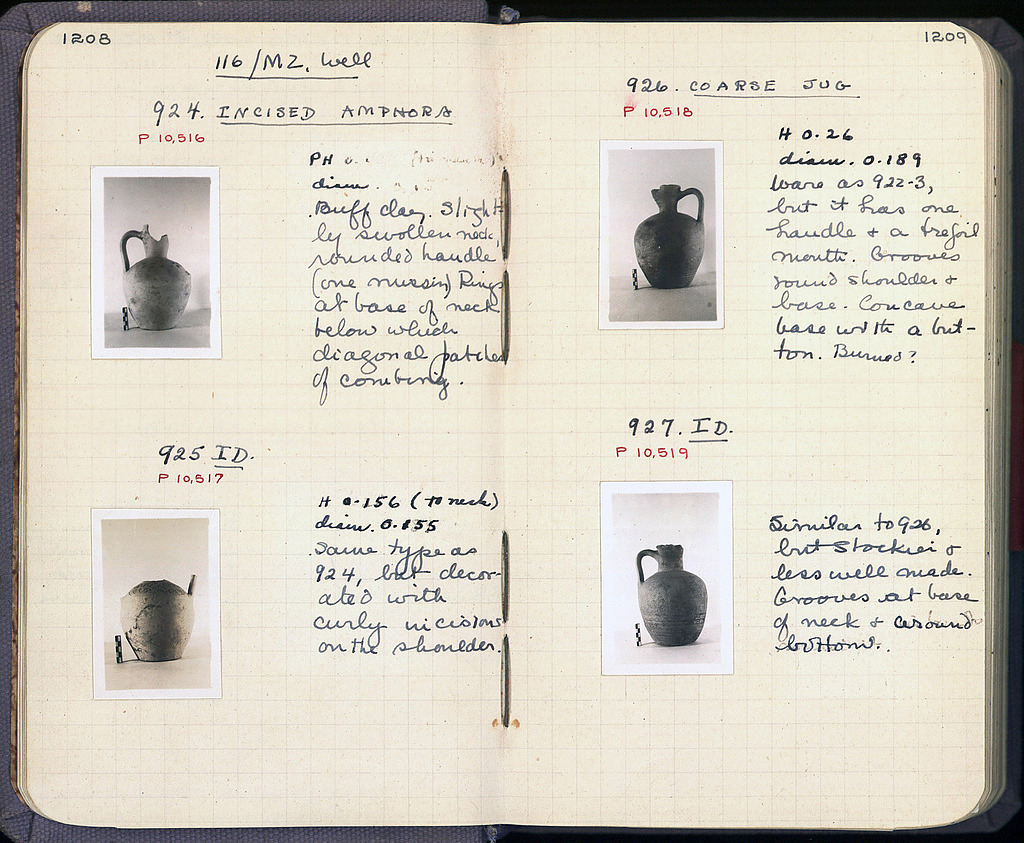 1208
116/MZ. Well
924. INCISED AMPHORA
P 10,516
PH 0.
diam.
Buff clay. Slight-
ly swollen neck,
rounded handle
(one missin) Rings
at base of neck
below which
diagonal patches
of combing.
925 ID.
P 10,517
H 0.156 (to neck)
diam. 0.155
Same type as
924, but decor-
ated with
curly incisions
on the shoulder.
1209
926. COARSE JUG
P 10,518
H 0.26
diam. 0.189
Ware as 922-3,
but it has one
handle & a trefoil
mouth. Grooves
round shoulder &
base. Concave
base with a but-
ton. Burned?
927. ID.
P 10,519
Similar to 926,
but stockier &
less well made.
Grooves at base
of neck & around
bottom.